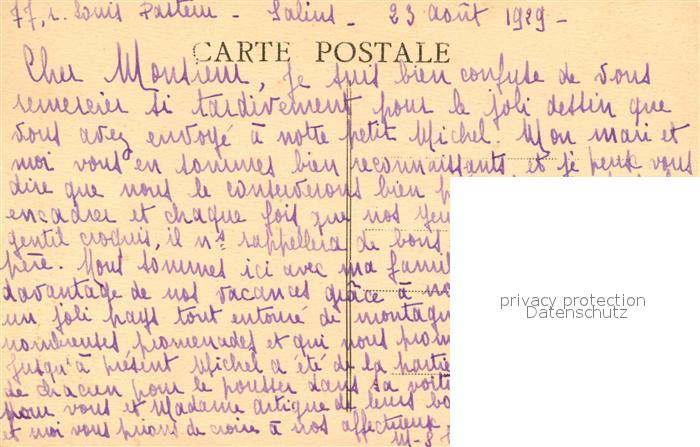 77, r. Louis Pasteur - Salins - 23 août 1929 -
CARTE POSTALE
Cher Monsieur, Je suis bien confuse de vous
remercier si tardivement pour le joli dessin que
vous avez envoyé à notre petit Michel. Mon mari et
moi vous en sommes bien reconnaissants, et je peux vous
dire que nous le conserverons bien
encadrer et chaque fois que nos yeu
gentil croquis, il ns rappellera de bons
père. Nous sommes ici avec ma famil
davantage de nos vacances grâce à no
un joli pays tout entouré de montagn
nombreuses promenades et qui nous prom
Jusqu'à présent Michel a été de la partie
de chacun pour le pousser dans sa voitu
pour vous et Madame Artigue de leurs bo
et moi vous prions de croire à nos affectueux
privacy protection
Datenschutz